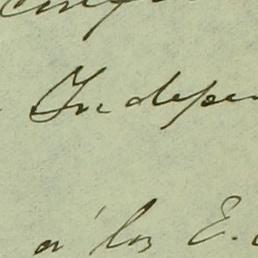 Indepen
á los E.